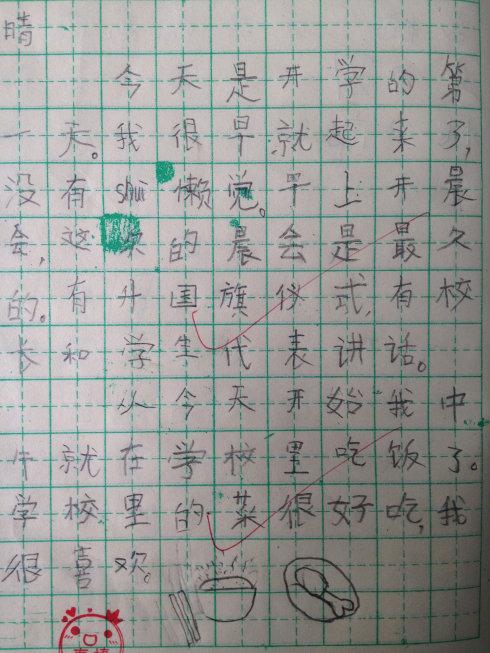 晴
今天是开学的第
一天。我很早就起来了,
没有shuì懒觉。早上开晨
会,这次的晨会是最久
的。有升国旗仪式,有校
长和学生代表讲话。
从今天开始我中
午就在学校里吃饭了。
学校里的菜很好吃,我
很喜欢。